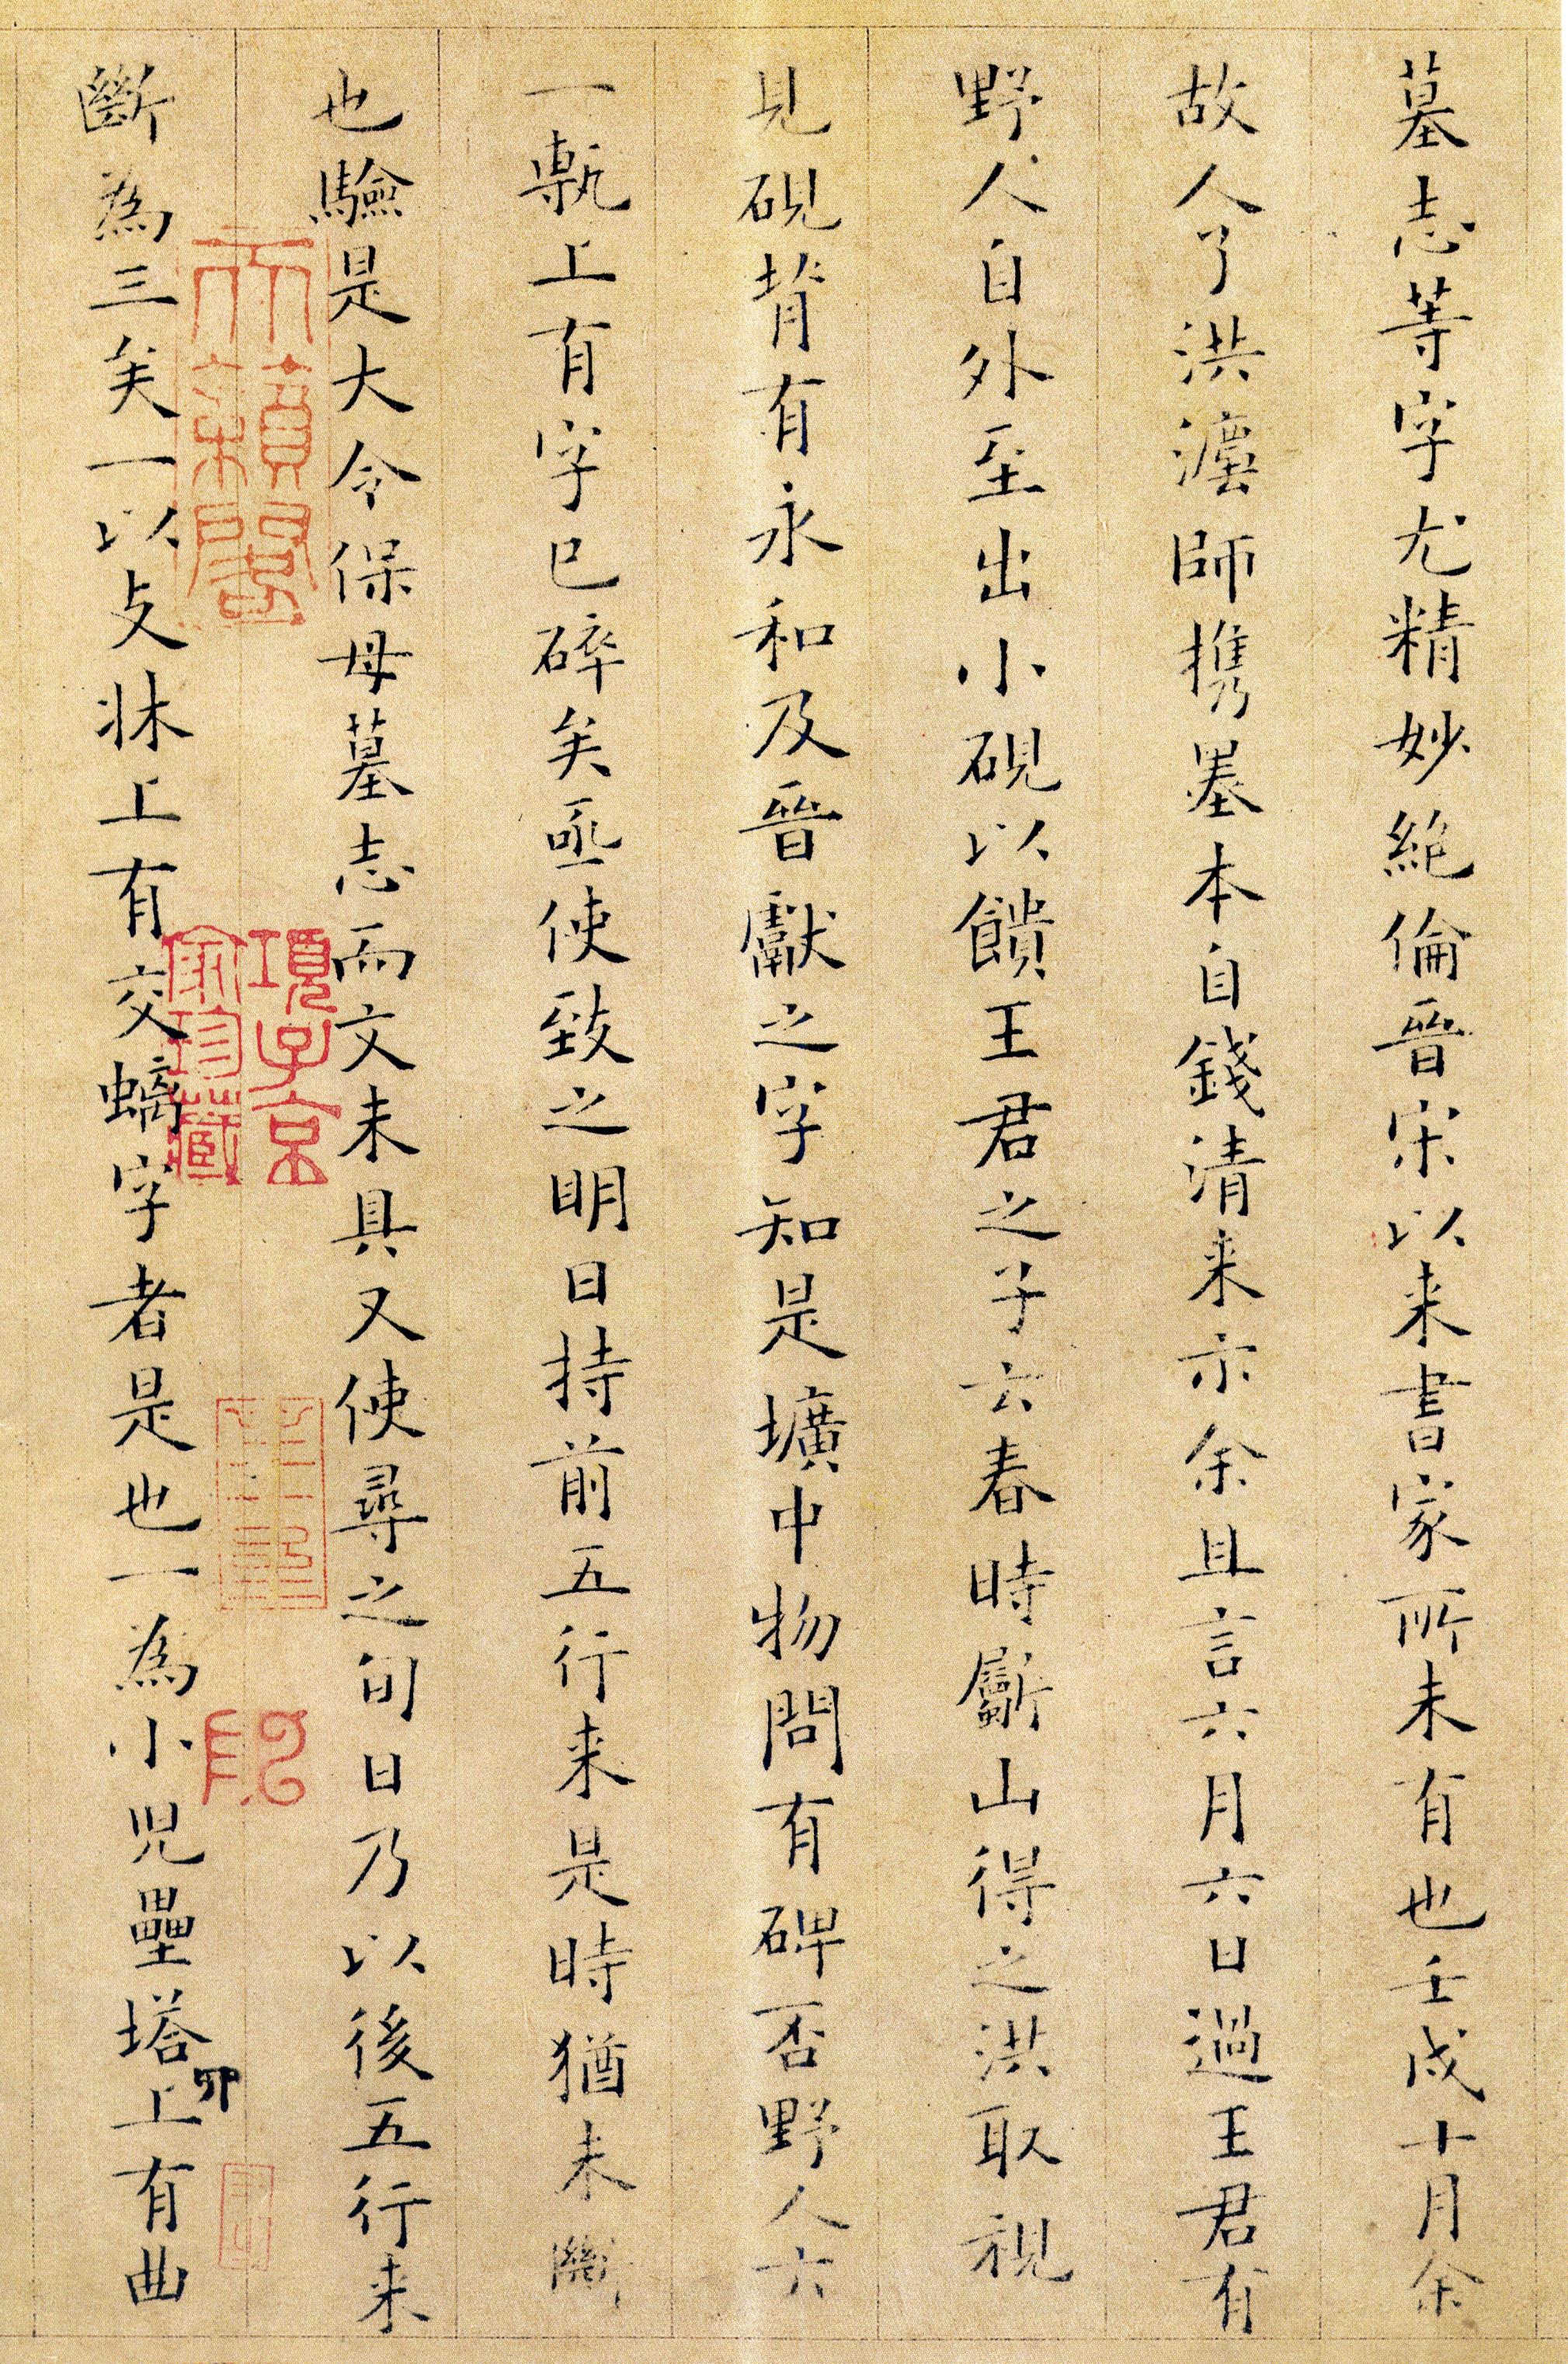 墓志等字尤精妙絕倫晉宋以来書家所未有也壬戌十月余
故人了洪灋師携墨本自錢清来示余且言六月六日過王君有
野人自外至出小硯以饋王君之子云春時斸山得之洪取視
見硯背有永和及晉獻之字知是壙中物問有碑否野人云
一甎上有字已碎矣亟使致之明日持前五行来是時猶未斷
也驗是大令保母墓志而文未具又使尋之旬日乃以後五行来
斷為三矣一以支牀上有交螭字者是也一為小児壘塔上有曲
項子京
家珍藏